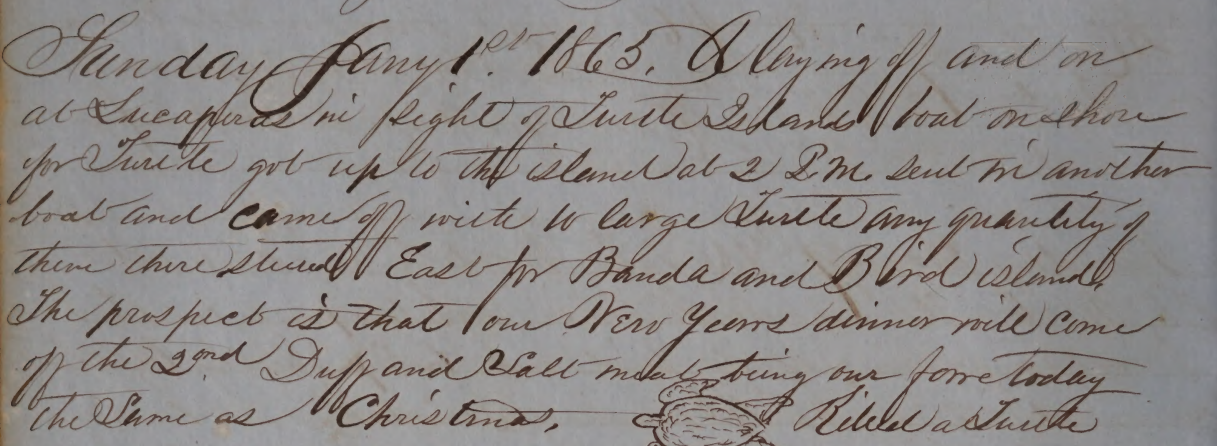 Sunday Jany 1st 1865. A laying off and on
at Lucaparas in sight of Turtle Islands boat on shore
for Turtle got up to the island at 2 P.M. sent in another
boat and came off with 10 large Turtle any quantity of
them there steered East for Banda and Bird island.
The prospect is that our New Years dinner will come
off the 2nd Duff and Salt meat being our fare today
the Same as Christmas. Killed a Turtle